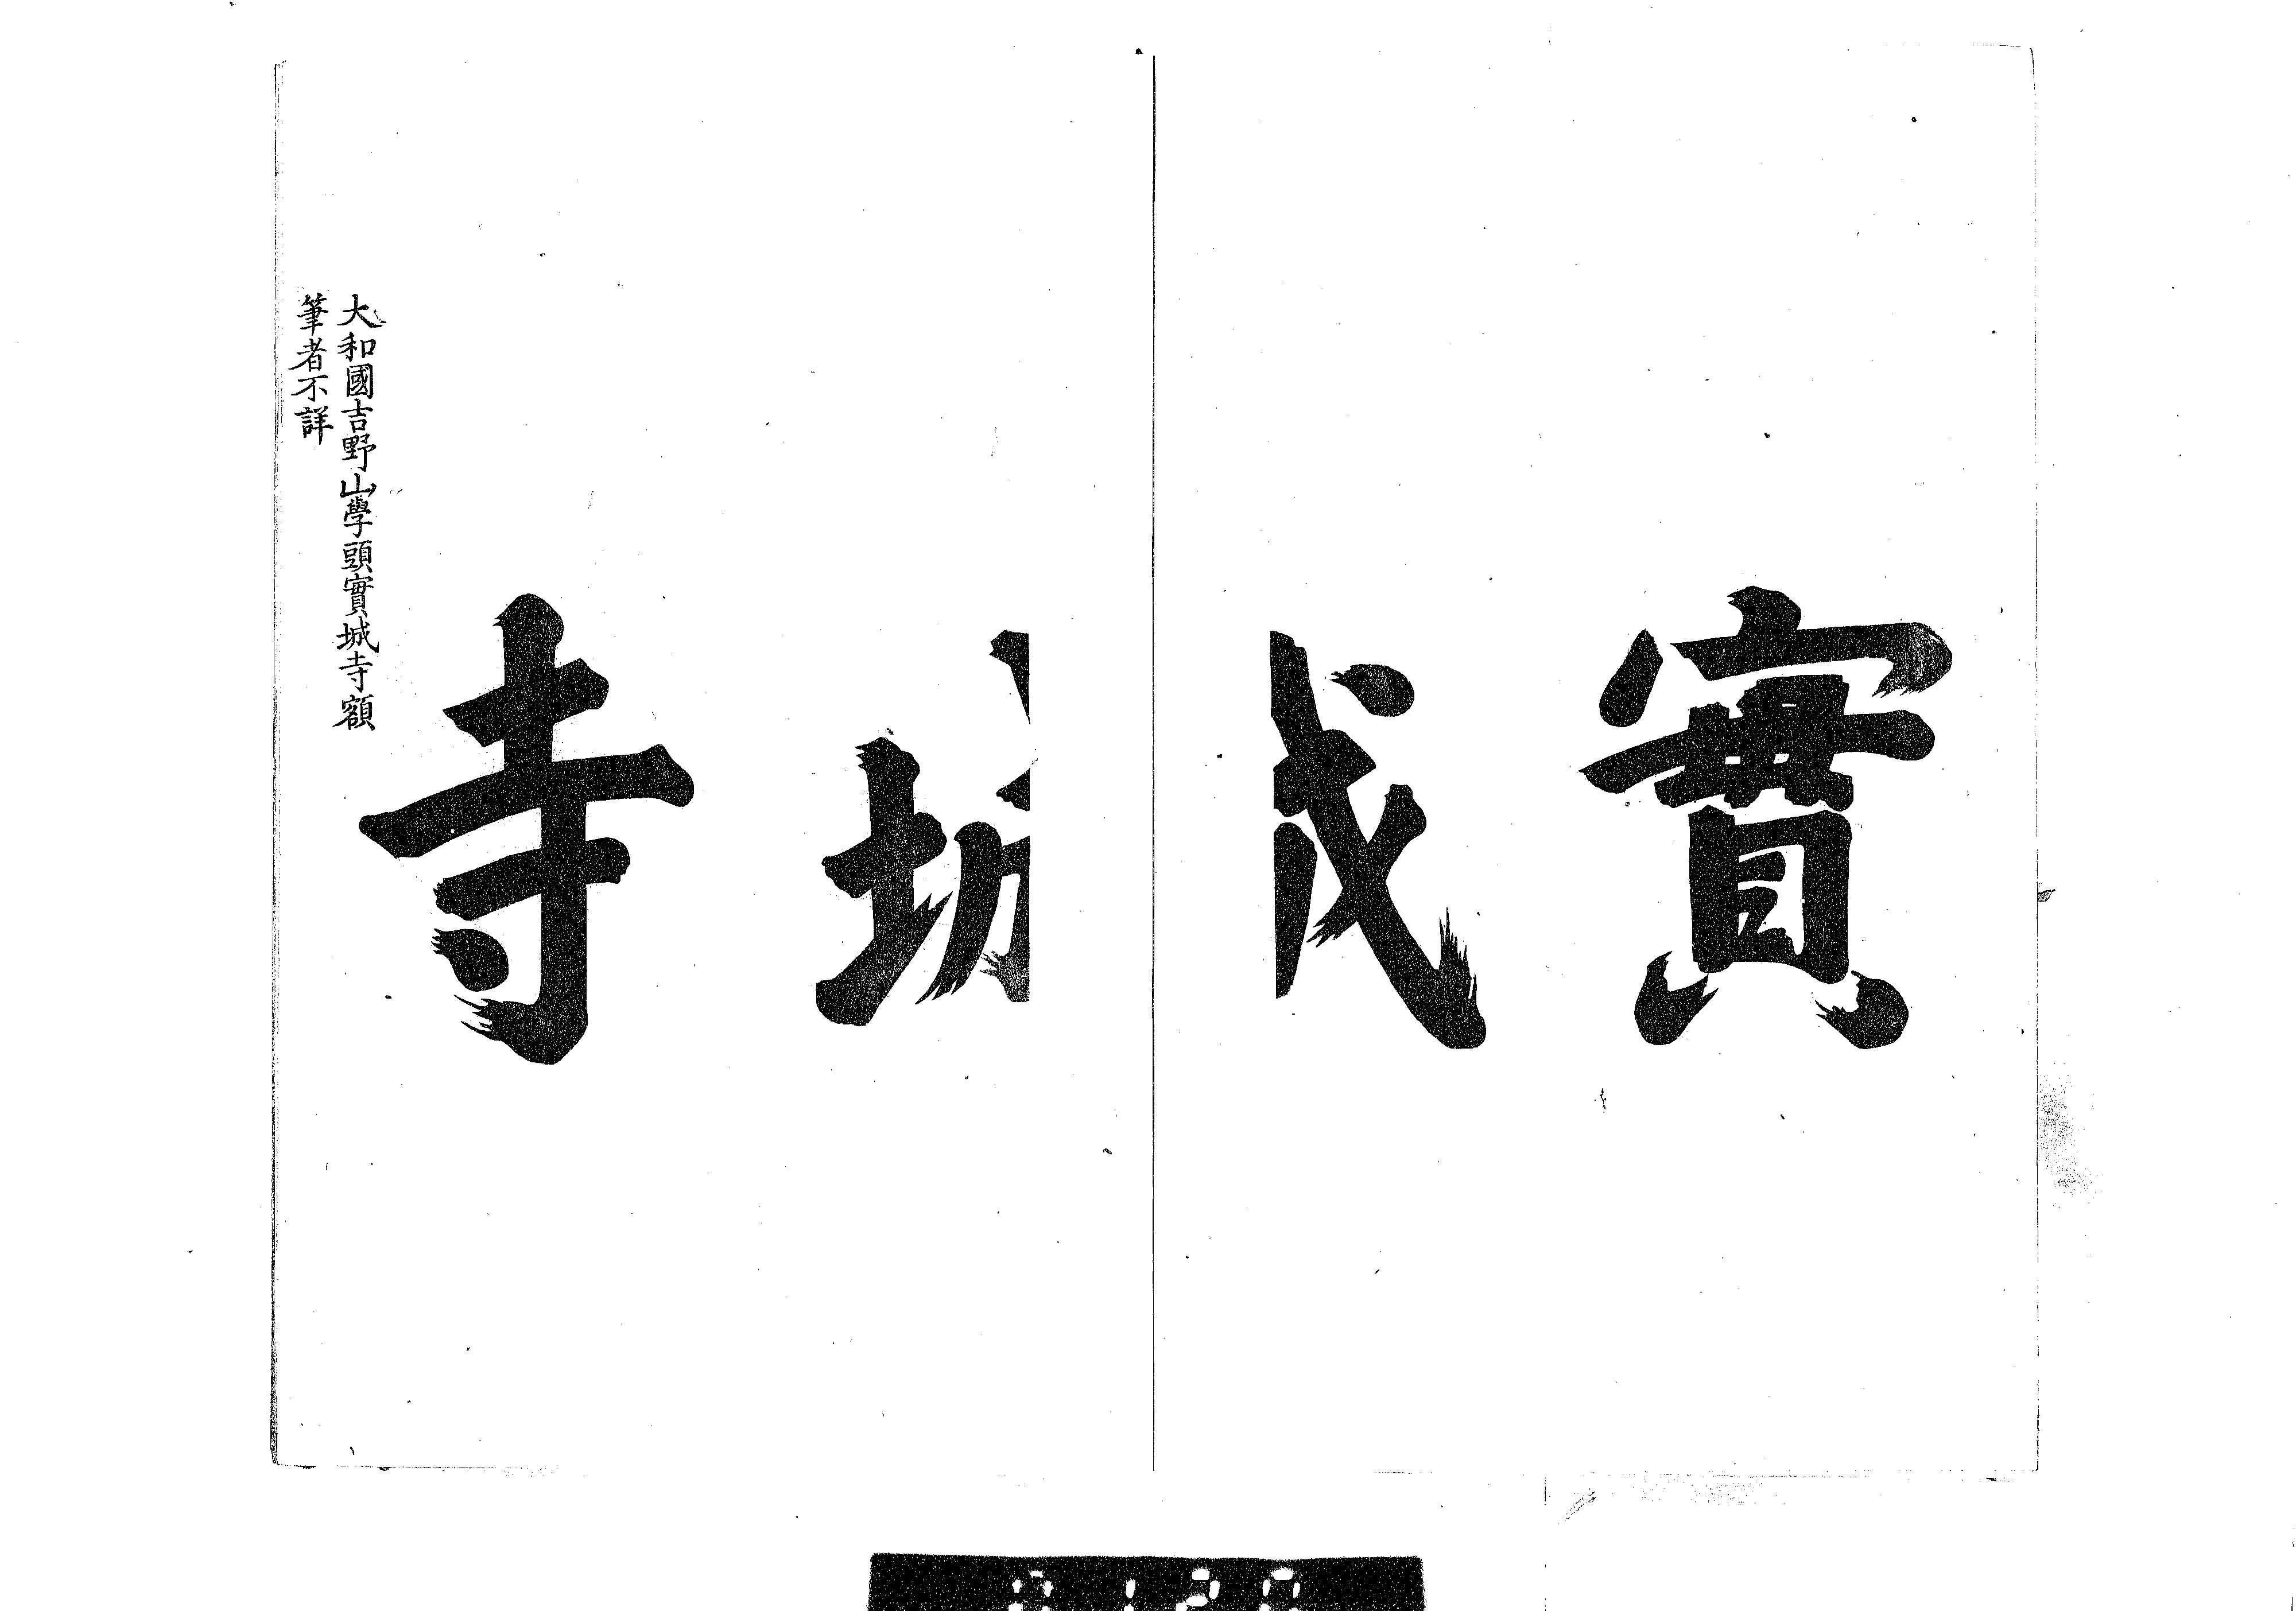 實城寺
大和國吉野山學頭實城寺額
筆者不詳